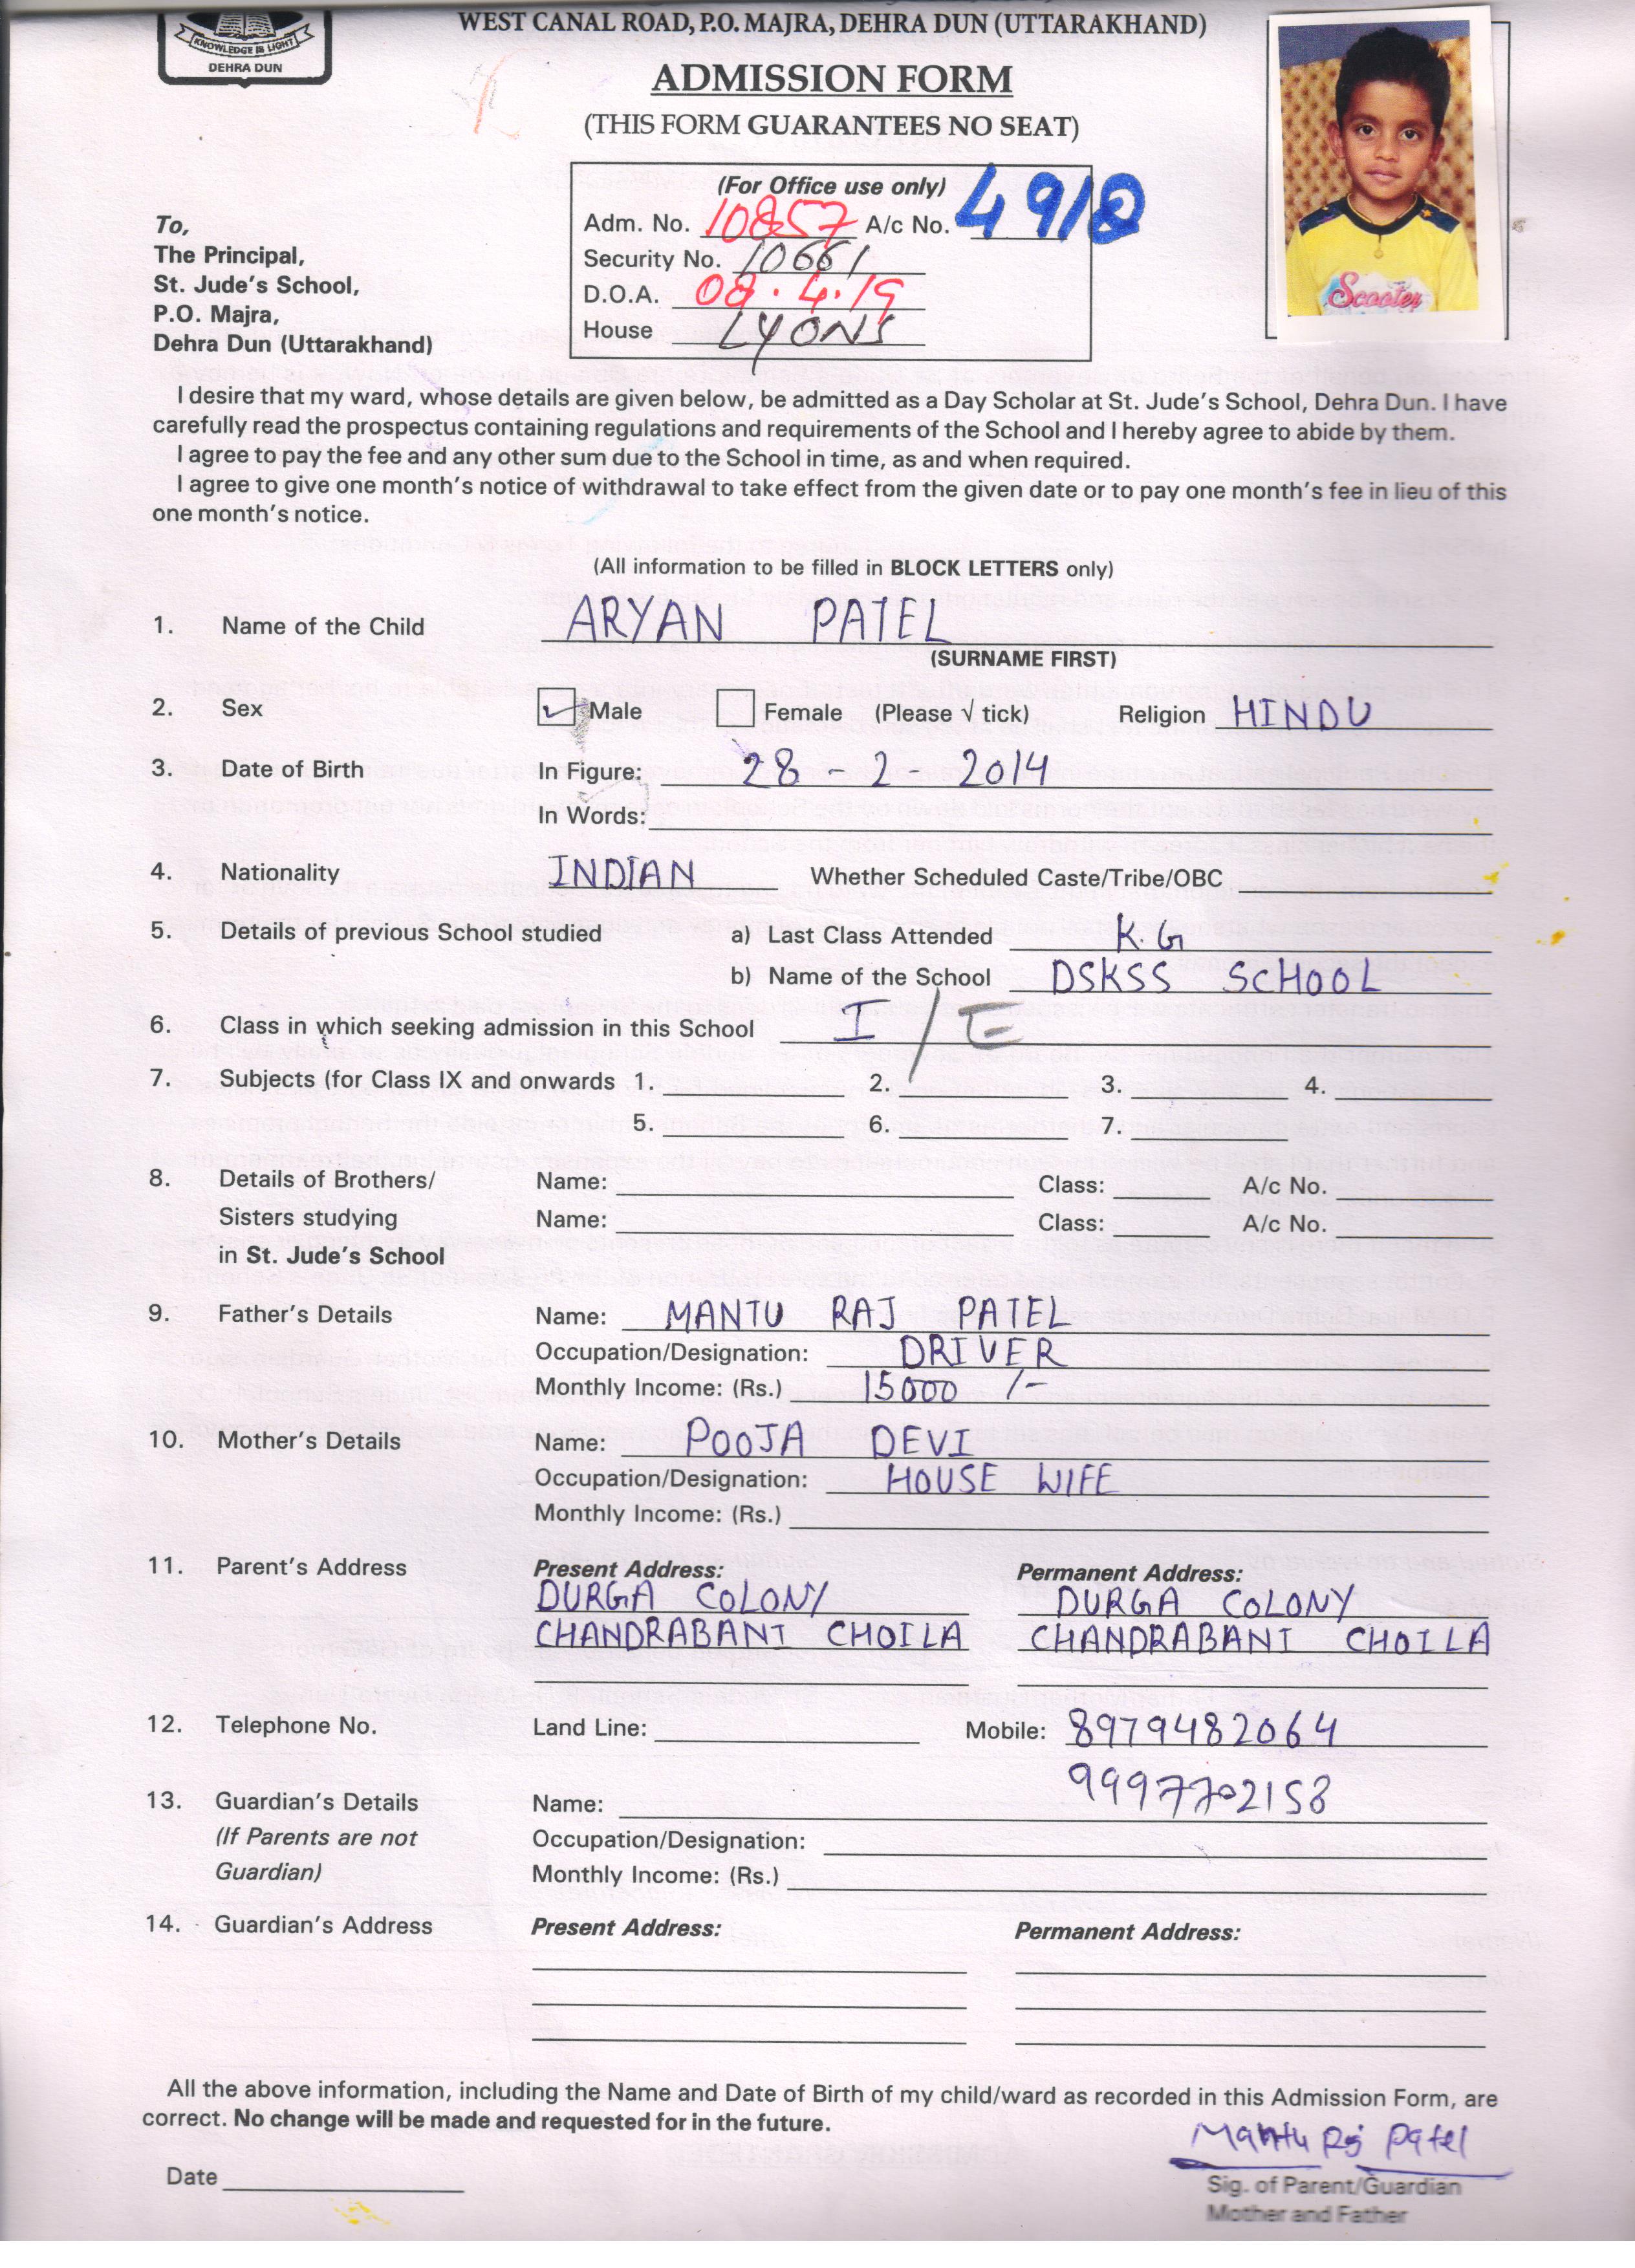 KNOWLEDGE IS LIGHT
DEHRA DUN
WEST CANAL ROAD, P.O. MAJRA, DEHRA DUN (UTTARAKHAND)
ADMISSION FORM
(THIS FORM GUARANTEES NO SEAT)
(For Office use only)
Adm. No. 10857 A/c No. 4918
Security No. 10661
D.O.A. 08.4.19
House LYONS
To,
The Principal,
St. Jude's School,
P.O. Majra,
Dehra Dun (Uttarakhand)
Scooter
I desire that my ward, whose details are given below, be admitted as a Day Scholar at St. Jude's School, Dehra Dun. I have
carefully read the prospectus containing regulations and requirements of the School and I hereby agree to abide by them.
I agree to pay the fee and any other sum due to the School in time, as and when required.
I agree to give one month's notice of withdrawal to take effect from the given date or to pay one month's fee in lieu of this
one month's notice.
(All information to be filled in BLOCK LETTERS only)
1. Name of the Child ARYAN PATEL
(SURNAME FIRST)
2. Sex ✓ Male Female (Please √ tick) Religion HINDU
3. Date of Birth In Figure: 28 - 2 - 2014
In Words:
4. Nationality INDIAN Whether Scheduled Caste/Tribe/OBC
5. Details of previous School studied a) Last Class Attended K.G
b) Name of the School DSKSS SCHOOL
6. Class in which seeking admission in this School I / E
7. Subjects (for Class IX and onwards 1. 2. 3. 4.
5. 6. 7.
8. Details of Brothers/ Name: Class: A/c No.
Sisters studying Name: Class: A/c No.
in St. Jude's School
9. Father's Details Name: MANTU RAJ PATEL
Occupation/Designation: DRIVER
Monthly Income: (Rs.) 15000 /-
10. Mother's Details Name: POOJA DEVI
Occupation/Designation: HOUSE WIFE
Monthly Income: (Rs.)
11. Parent's Address Present Address: Permanent Address:
DURGA COLONY DURGA COLONY
CHANDRABANI CHOILA CHANDRABANI CHOILA
12. Telephone No. Land Line: Mobile: 8979482064
9997702158
13. Guardian's Details Name:
(If Parents are not Occupation/Designation:
Guardian) Monthly Income: (Rs.)
14. Guardian's Address Present Address: Permanent Address:
All the above information, including the Name and Date of Birth of my child/ward as recorded in this Admission Form, are
correct. No change will be made and requested for in the future.
Mantu Rj Patel
Date
Sig. of Parent/Guardian
Mother and Father